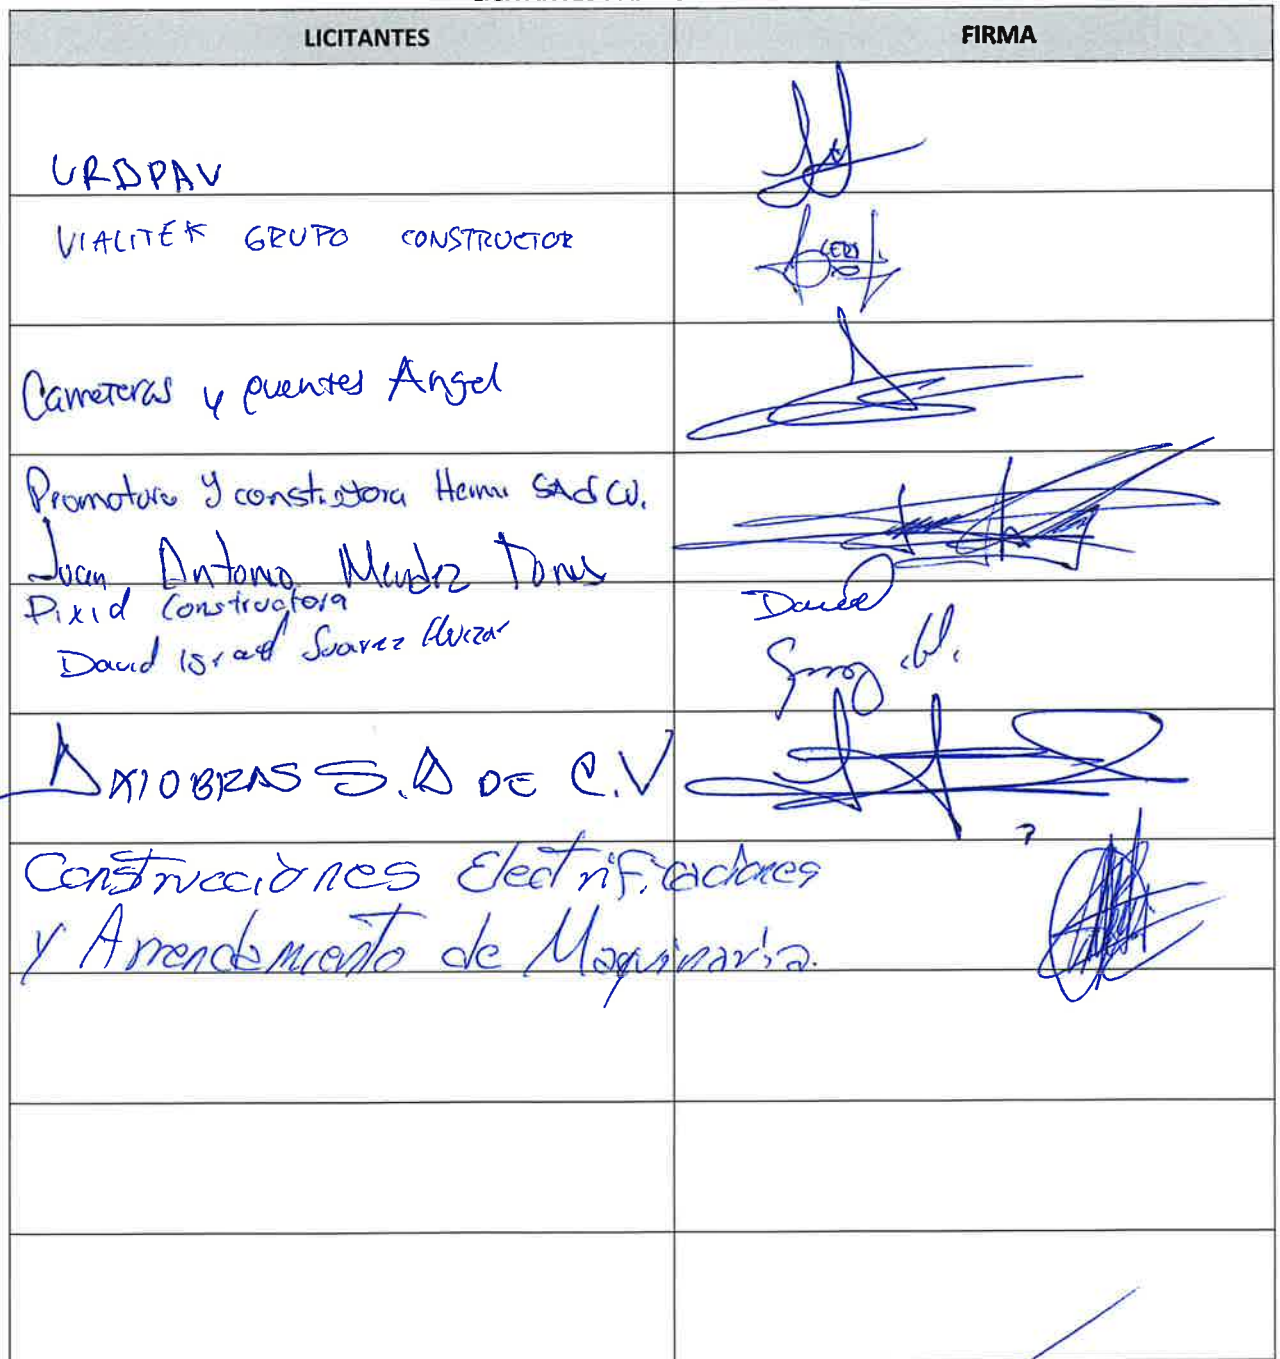 LICITANTES FIRMA
URBPAV
VIALITEK GRUPO CONSTRUCTOR
CERS
Carreteras y puentes Angel
Promotora y constructora SA de CV.
Juan Antonio Mendez Torres
Dixid Constructora
David
David Israel Suarez
AXIOBRAS S.A DE C.V
Construcciones Electrificaciones
y Arrendamiento de Maquinaria.